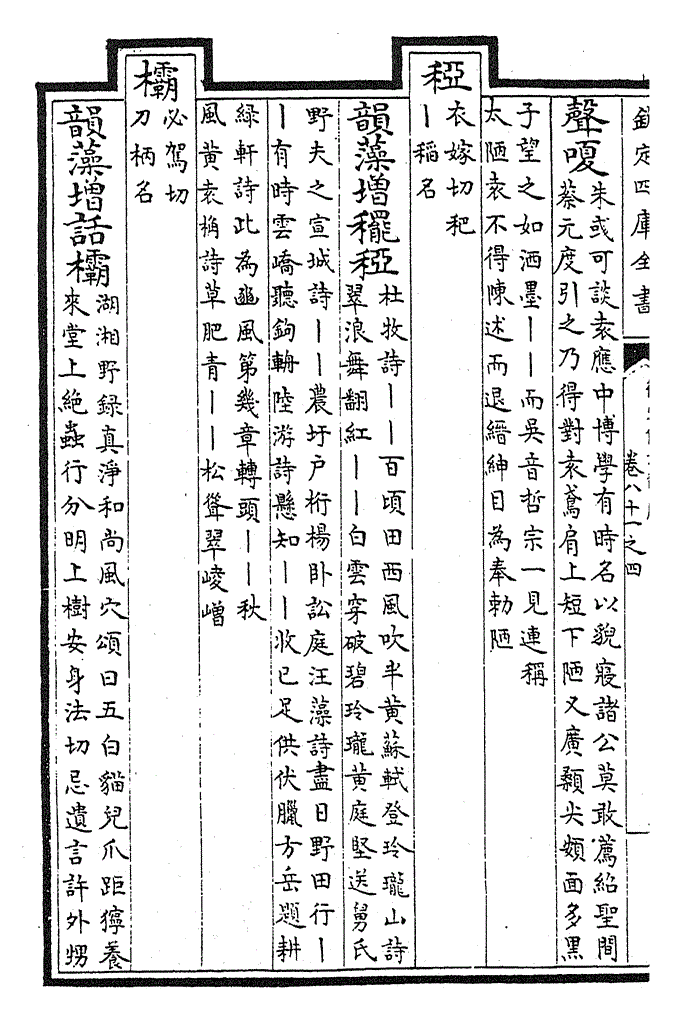 欽定四庫全書
卷八十一之四
聲嗄 朱彧可談袁應中博學有時名以貌寢諸公莫敢薦紹聖間
蔡元度引之乃得對袁鳶肩上短下陋又廣顙尖頦面多黑
子望之如洒墨丨丨而吳音哲宗一見連稱
太陋袁不得陳述而退縉紳目為奉勅陋
稏
衣嫁切耙
丨稻名
韻藻增䆉稏 杜牧詩丨丨百頃田西風吹半黃蘇軾登玲瓏山詩
翠浪舞翻紅丨丨白雲穿破碧玲瓏黃庭堅送舅氏
野夫之宣城詩丨丨農圩戶桁楊卧訟庭汪藻詩盡日野田行丨
丨有時雲嶠聽鉤輈陸游詩懸知丨丨收已足供伏臘方岳題耕
綠軒詩此為豳風第幾章轉頭丨丨秋
風黃袁桷詩草肥青丨丨松聳翠崚嶒
欛
必駕切
刀柄名
韻藻增話欛 湖湘野録真淨和尚風穴頌曰五白貓兒爪距獰養
來堂上絶蟲行分明上樹安身法切忌遺言許外甥